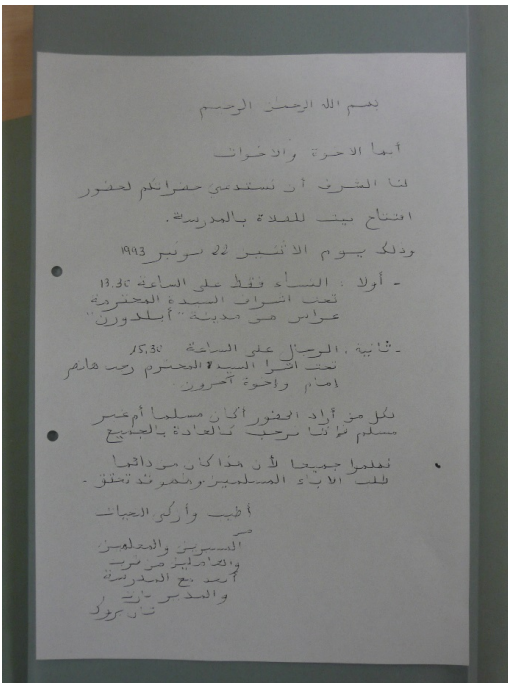 بسم الله الرحمن الرحيم
أيها الاخوة والاخوات
لنا الشرف أن نستدعي حضراتكم لحضور
افتتاح بيت للصلاة بالمدرسة.
وذلك يوم الاثنين 22 نونبر 1993
- أولا : النساء فقط على الساعة 13.30
تحت اشراف السيدة المحترمة
من مدينة "أبلدورن"
- ثانية : الرجال على الساعة 15,30
تحت اشرا السيد المحترم
إمام وإخوة آخرون
لكل من أراد الحضور أكان مسلما أم غير
مسلم مرحب كالعادة بالجميع
جميعا لأن هذا كان دائما
طلب الاباء المسلمين وقد تحقق .
أطيب وأزكى التحيات
من
والمعلمين
والعاملين
المدرسة
والمدير